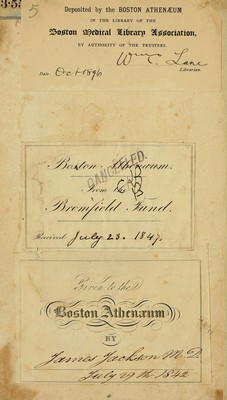 5
Deposited by the BOSTON ATHENÆUM
IN THE LIBRARY OF THE
Boston Medical Library Association,
BY AUTHORITY OF THE TRUSTEES.
Wm. C. Lane
Librarian.
Date Oct 1896
Boston Athenæum.
CANCELED.
From the
Bromfield Fund.
Received July 23. 1847.
Given to the
Boston Athenæum
BY
James Jackson M.D.
July 19th 1842